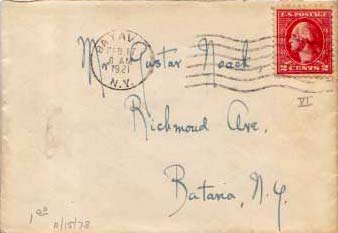 BATAVIA
FEB 1
8 AM
1921
N.Y.
U.S. POSTAGE
2 CENTS 2
Mr Gustav Noack,
VI
Richmond Ave.
Batavia, N.Y.
1 00
11/15/73